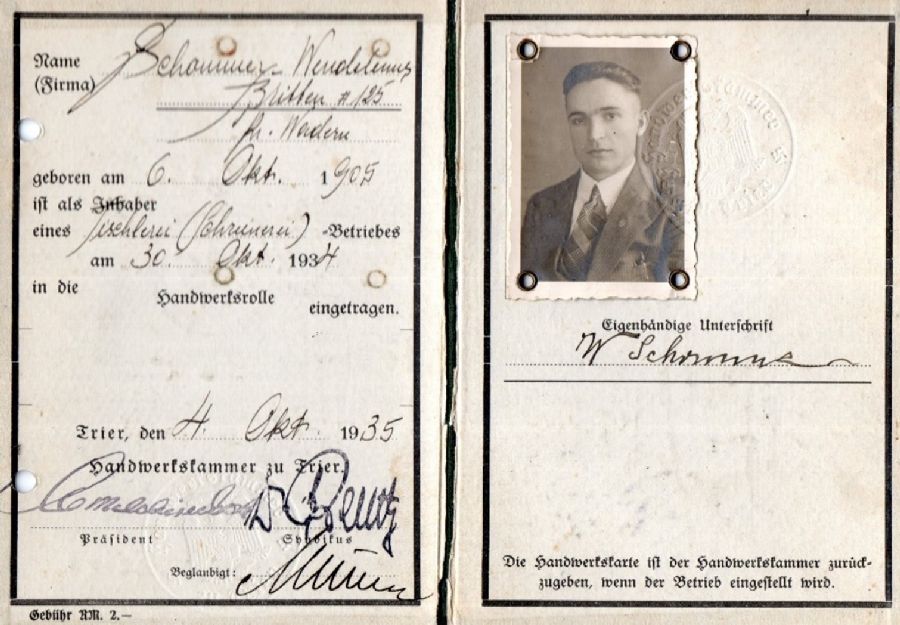 Name
(Firma)
Schommer Wendelinus
Britten # 125
Kr. Wadern
geboren am 6. Okt. 1905
ist als Inhaber
eines Tischlerei (Schreinerei) -Betriebes
am 30. Okt. 1934
in die Handwerksrolle eingetragen.
Trier, den 4. Okt 1935
Handwerkskammer zu Trier.
Präsident Syndikus
Beglaubigt:
Gebühr RM. 2.—
Eigenhändige Unterschrift
W Schommer
Die Handwerkskarte ist der Handwerkskammer zurück-
zugeben, wenn der Betrieb eingestellt wird.